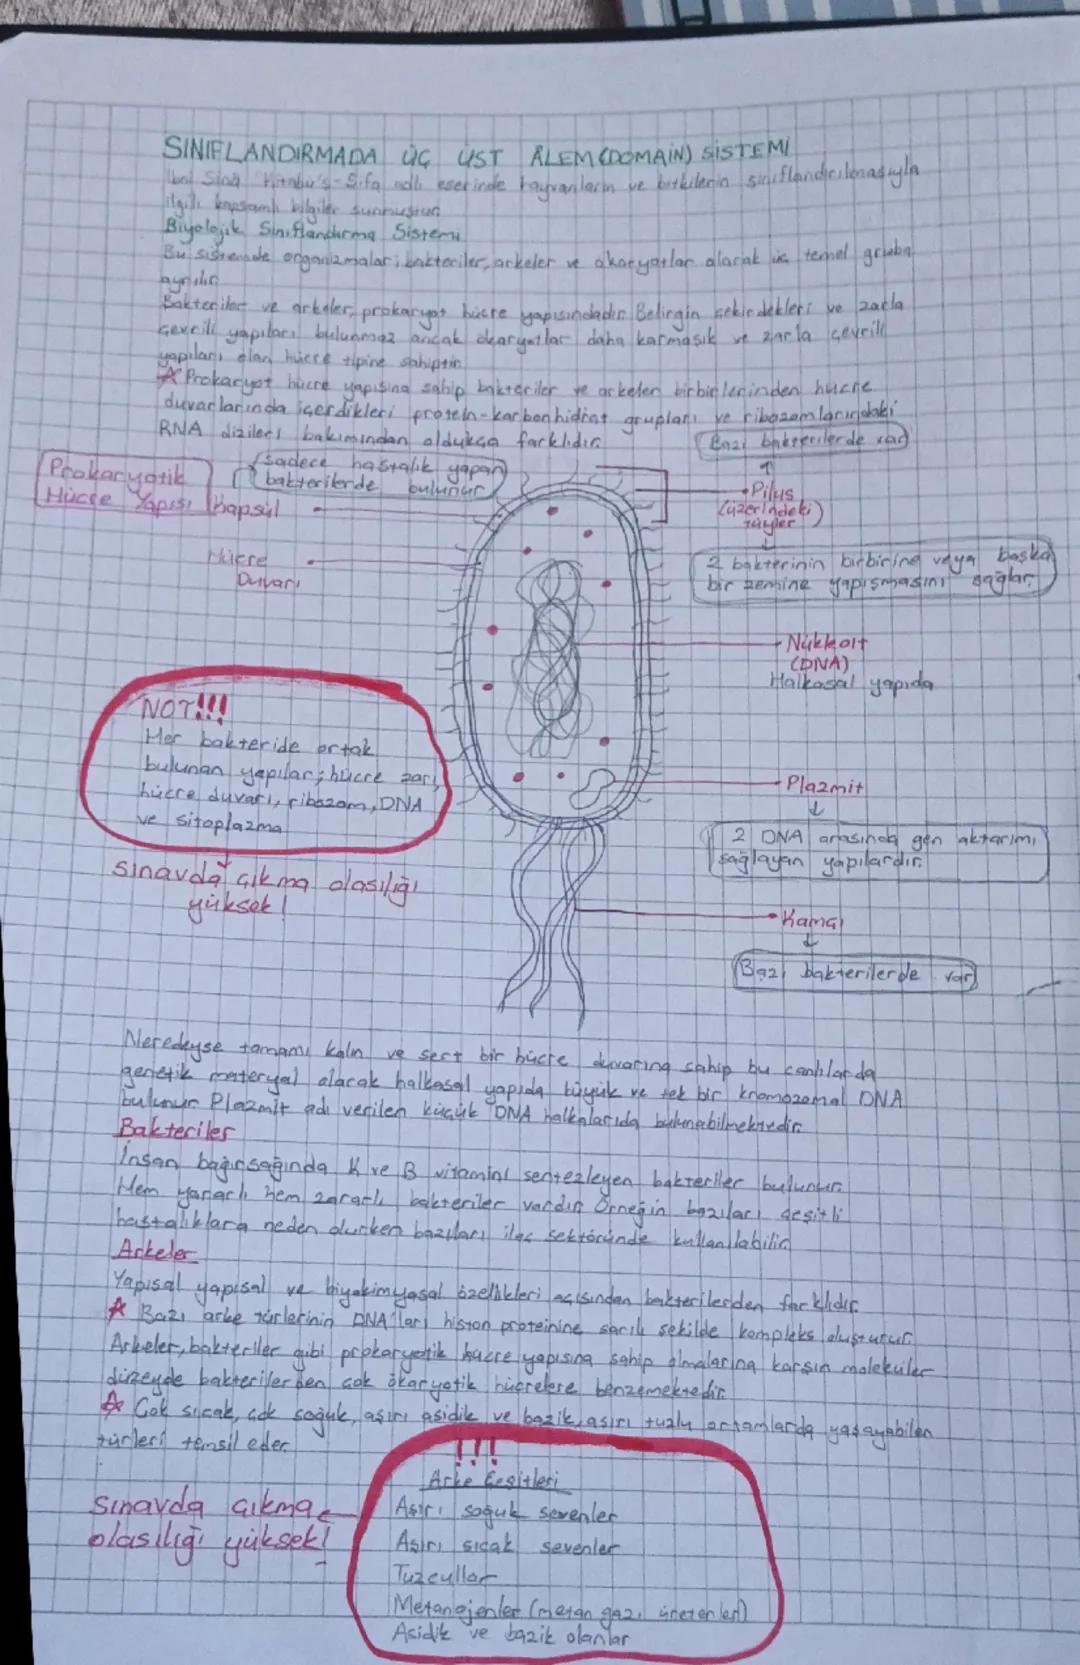 SINIFLANDIRMADA ÜÇ ÜST ÂLEM (DOMAİN) SİSTEMİ
İbni Sina Kitabü's-Şifa adlı eserinde hayvanların ve bitkilerin sınıflandırılmasıyla
ilgili kapsamlı bilgiler sunmuştur.
Biyolojik Sınıflandırma Sistemi
Bu sistemde organizmalar; bakteriler, arkeler ve ökaryotlar olarak üç temel gruba
ayrılır.
Bakteriler ve arkeler, prokaryot hücre yapısındadır. Belirgin çekirdekleri ve zarla
çevrili yapıları bulunmaz ancak ökaryotlar daha karmaşık ve zarla çevrili
yapıları olan hücre tipine sahiptir.
Prokaryot hücre yapısına sahip bakteriler ve arkeler birbirlerinden hücre
duvarlarında içerdikleri protein-karbonhidrat grupları ve ribozomlarındaki
RNA dizileri bakımından oldukça farklıdır.
Bazı bakterilerde var
Prokaryotik
Hücre Yapısı
(sadece hastalık yapan
bakterilerde bulunur)
Kapsül
Pilus
(üzerindeki)
tüyler
Hücre
Duvarı
2 bakterinin birbirine veya başka
bir zemine yapışmasını sağlar.
Nükleoit
(DNA)
Halkasal yapıda
NOT!!!
Her bakteride ortak
bulunan yapılar; hücre zarı,
hücre duvarı, ribozom, DNA
ve sitoplazma
Sınavda çıkma olasılığı
yüksek!
Plazmit
2 DNA arasında gen aktarımı
sağlayan yapılardır.
Kamçı
Bazı bakterilerde var
Neredeyse tamamı kalın ve sert bir hücre duvarına sahip bu canlılarda
genetik materyal olarak halkasal yapıda büyük ve tek bir kromozomal DNA
bulunur Plazmit adı verilen küçük DNA halkalarıda bulunabilmektedir.
Bakteriler
İnsan bağırsağında K ve B vitamini sentezleyen bakteriler bulunur.
Hem yararlı hem zararlı bakteriler vardır. Örneğin bazıları çeşitli
hastalıklara neden olurken bazıları ilaç sektöründe kullanılabilir.
Arkeler
Yapısal yapısal ve biyokimyasal özellikleri açısından bakterilerden farklıdır.
Bazı arke türlerinin DNA'ları histon proteinine sarılı şekilde kompleks oluşturur.
Arkeler, bakteriler gibi prokaryotik hücre yapısına sahip olmalarına karşın moleküler
düzeyde bakterilerden çok ökaryotik hücrelere benzemektedir.
Çok sıcak, çok soğuk, aşırı asidik ve bazik, aşırı tuzlu ortamlarda yaşayabilen
türleri temsil eder.
!!!
Arke Çeşitleri
Sınavda çıkma
olasılığı yüksek!
Aşırı soğuk sevenler
Aşırı sıcak sevenler
Tuzcullar
Metanojenler (metan gazı üretenler)
Asidik ve bazik olanlar